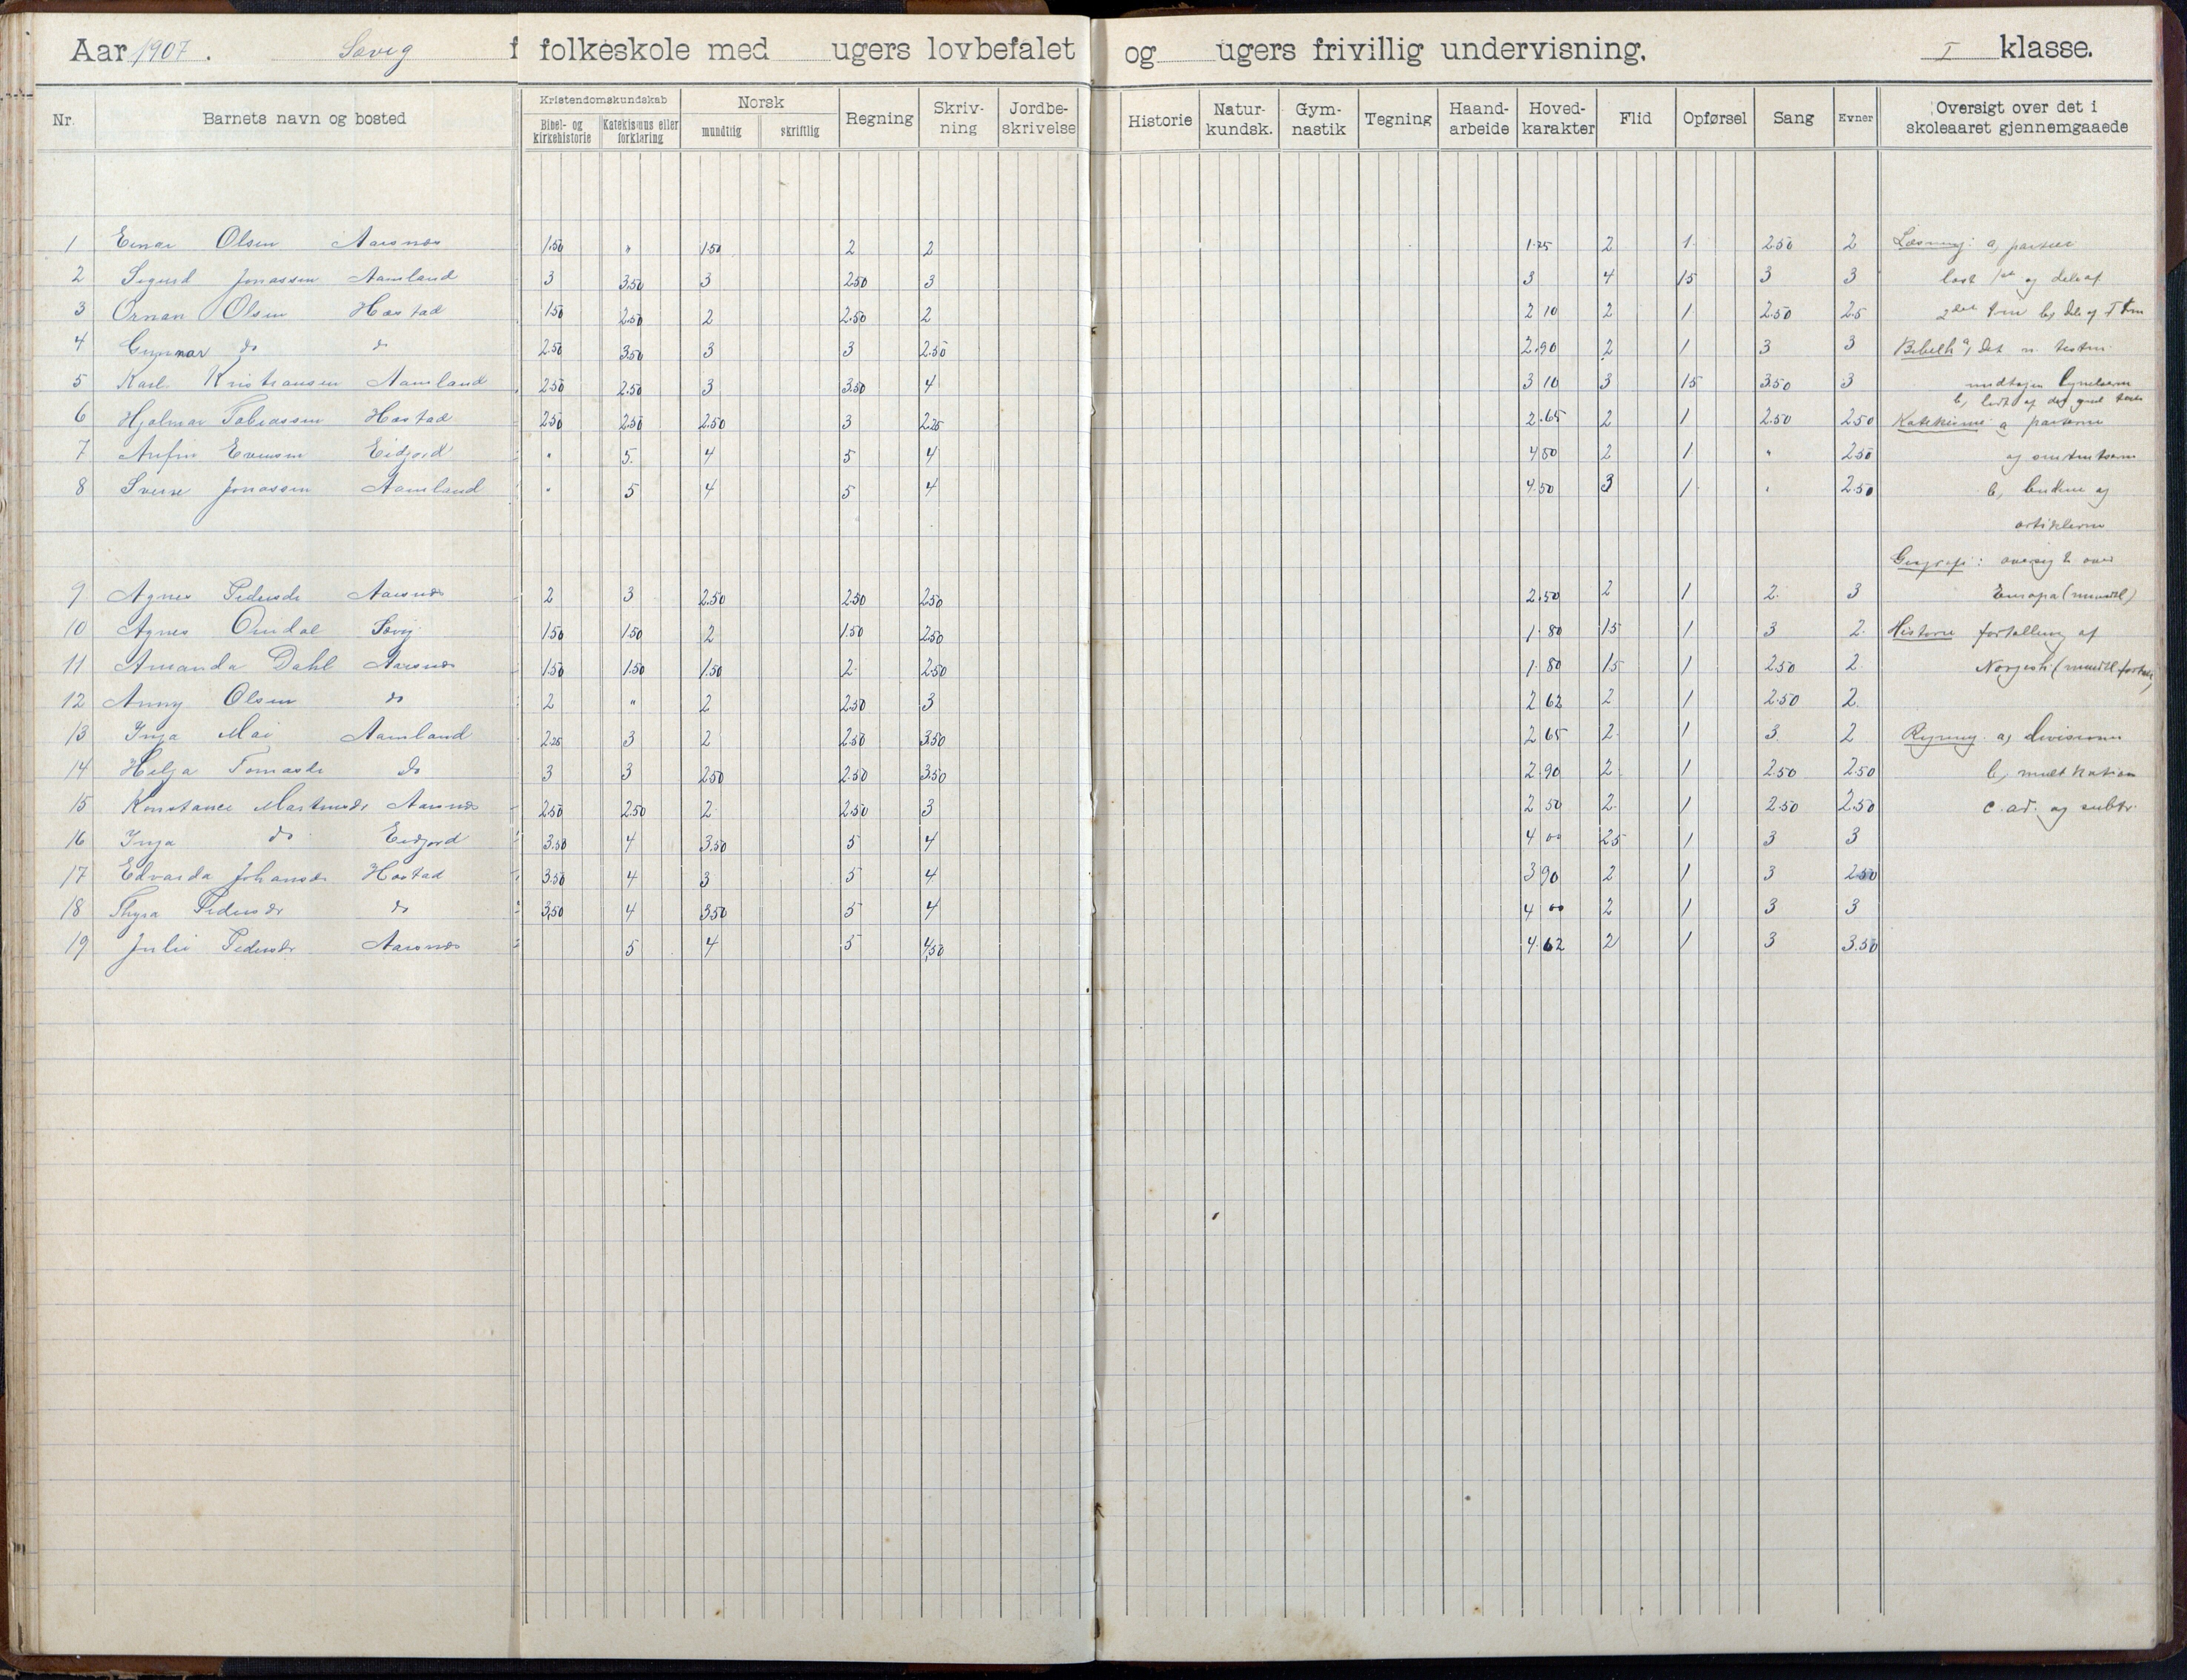 Aar 1907. Søvig folkeskole med ugers lovbefalet og ugers frivillig undervisning. I klasse.
Nr. Barnets navn og bosted Kristendomskundskab Bibel- og kirkehistorie Katekismus eller forklaring Norsk mundtlig skriftlig Regning Skriv-ning Jordbe-skrivelse Historie Natur-kundsk. Gym-nastik Tegning Haand-arbeide Hoved-karakter Flid Opførsel Sang Evner Oversigt over det i skoleaaret gjennemgaaede
1 Einar Olsen Aarsnes 1.50 " 1.50 2 2 1.75 2 1. 2.50 2 Læsning: a,
2 Sigurd Jonassen Aamland 3 3.50 3 2.50 3 3 4 15 3 3 læst 1ste og dele af
3 Ornan Olsen Hæstad 1.50 2.50 2 2.50 2 2 10 2 1 2.50 2.5
4 Gunnar do do 2.50 3.50 3 3 2.50 2.90 2 1 3 3 Bibelh a, Det n. testm.
5 Karl Kristiansen Aamland 2.50 2.50 3 3.50 4 3 10 3 15 3.50 3
6 Hjalmar Tobiassen Hæstad 2.50 2.50 2.50 3 2.25 2.65 2 1 2.50 2.50 Katekisme a parterne
7 Arfin Evensen Eidjord " 5. 4 5 4 4 50 2 1 " 2.50
8 Sverre Jonassen Aamland " 5 4 5 4 4.50 3 1 " 2.50 b, budene og
artiklerne
Geografi: oversigt over
9 Agnes Pedersdr Aarsnes 2 3 2.50 2.50 2.50 2.50 2 1 2. 3 Europa (mundtl)
10 Agnes Omdal Søvig 1.50 1.50 2 1.50 2.50 1.80 15 1 3 2. Historie fortælling af
11 Amanda Dahl Aarsnes 1.50 1.50 1.50 2 2.50 1.80 15 1 2.50 2 Norgesh (mundtl
12 Anny Olsen do 2 " 2 2.50 3 2 62 2 1 2.50 2.
13 Inga Mai Aamland 2.25 3 2 2.50 3.50 2 65 2 1 3 2 Regning a, divisionen
14 Helga Tomasdr do 3 3 2.50 2.50 3.50 2.90 2 1 2.50 2.50 b,
15 Konstance Martinsdr Aarsnes 2.50 2.50 2 2.50 3 2 50 2 1 2.50 2.50 c. ad. og subtr.
16 Inga do Eidjord 3.50 4 3.50 5 4 4 00 25 1 3 3
17 Edvarda Johansdr Hæstad 3.50 4 3 5 4 3 90 2 1 3 2.50
18 Thyra Pedersdr do 3.50 4 3.50 5 4 4 00 2 1 3 3
19 Julie Pedersdr Aarsnes 5 4 5 4.50 4.62 2 1 3 3.50